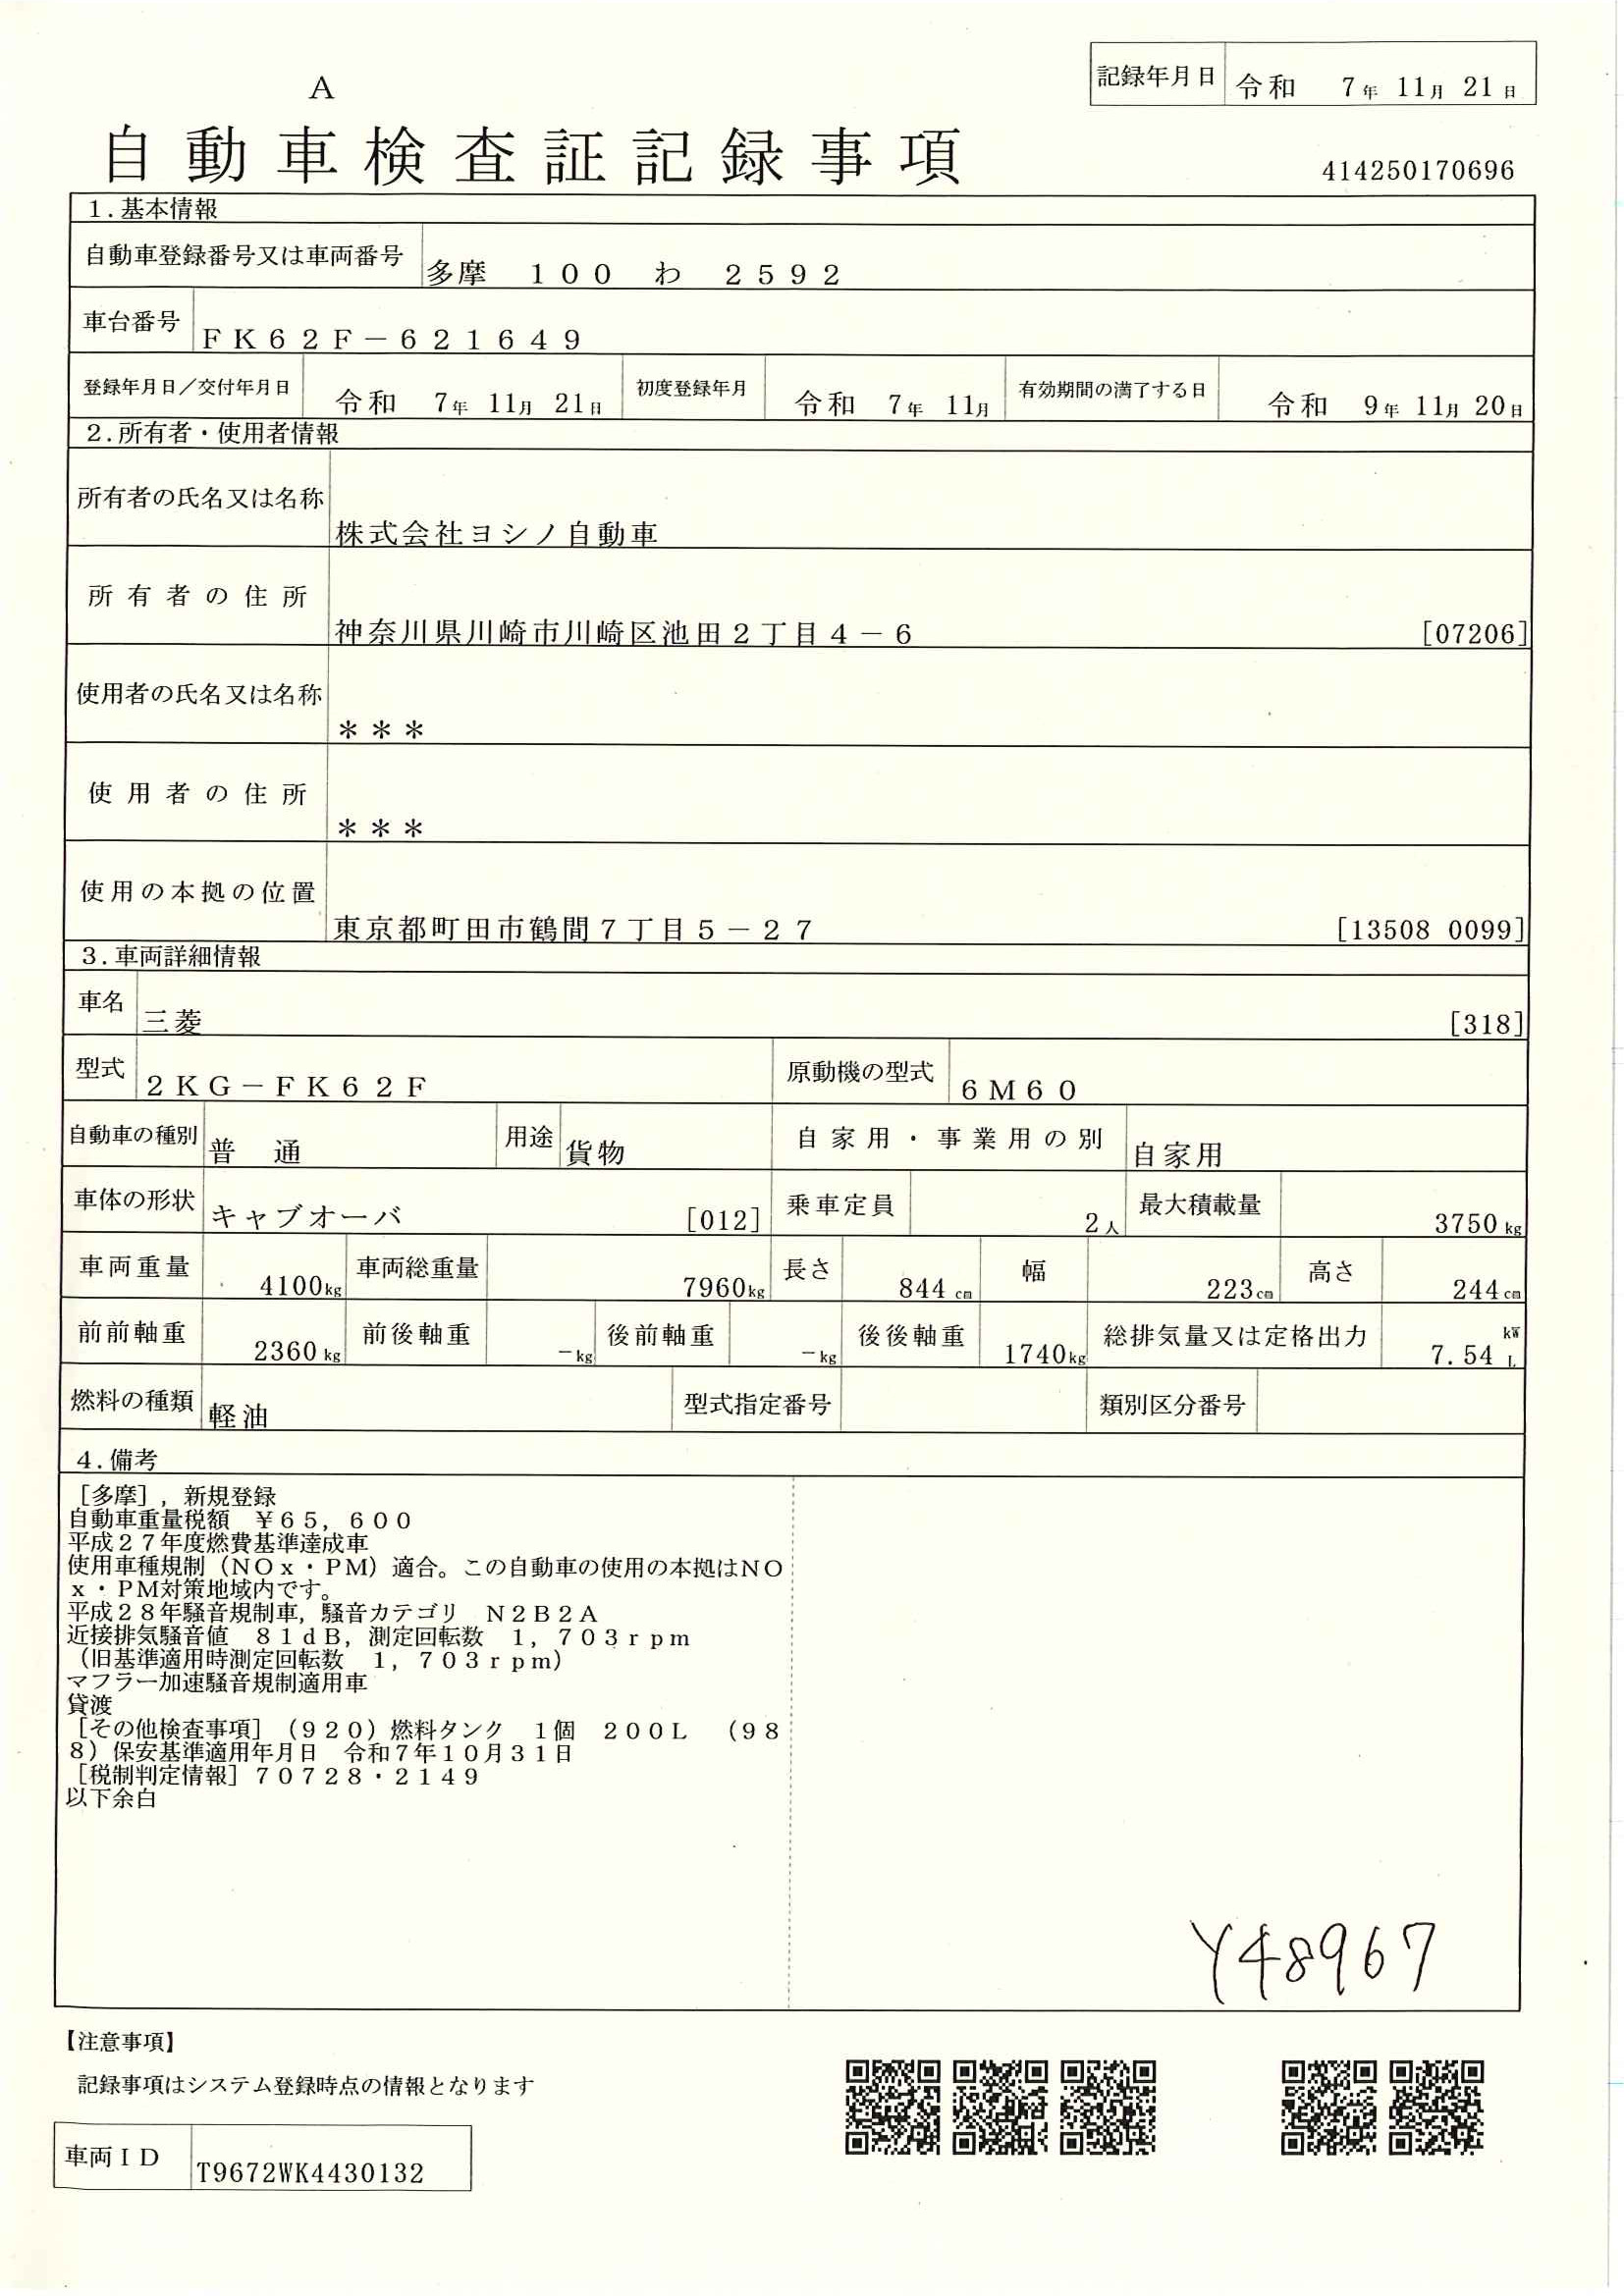 記録年月日 令和 7年 11月 21日
A
自動車検査証記録事項
414250170696
1.基本情報
自動車登録番号又は車両番号 多摩 100 わ 2592
車台番号 FK62F-621649
登録年月日/交付年月日 令和 7年 11月 21日 初度登録年月 令和 7年 11月 有効期間の満了する日 令和 9年 11月 20日
2.所有者・使用者情報
所有者の氏名又は名称 株式会社ヨシノ自動車
所有者の住所 神奈川県川崎市川崎区池田2丁目4-6 [07206]
使用者の氏名又は名称 ***
使用者の住所 ***
使用の本拠の位置 東京都町田市鶴間7丁目5-27 [13508 0099]
3.車両詳細情報
車名 三菱 [318]
型式 2KG-FK62F 原動機の型式 6M60
自動車の種別 普 通 用途 貨物 自家用・事業用の別 自家用
車体の形状 キャブオーバ [012] 乗車定員 2人 最大積載量 3750kg
車両重量 4100kg 車両総重量 7960kg 長さ 844cm 幅 223cm 高さ 244cm
前前軸重 2360kg 前後軸重 -kg 後前軸重 -kg 後後軸重 1740kg 総排気量又は定格出力 7.54 kW L
燃料の種類 軽油 型式指定番号 類別区分番号
4.備考
[多摩],新規登録
自動車重量税額 ¥65,600
平成27年度燃費基準達成車
使用車種規制(NOx・PM)適合。この自動車の使用の本拠はNO
x・PM対策地域内です。
平成28年騒音規制車,騒音カテゴリ N2B2A
近接排気騒音値 81dB,測定回転数 1,703rpm
(旧基準適用時測定回転数 1,703rpm)
マフラー加速騒音規制適用車
貸渡
[その他検査事項](920)燃料タンク 1個 200L (98
8)保安基準適用年月日 令和7年10月31日
[税制判定情報]70728・2149
以下余白
Y48967
【注意事項】
記録事項はシステム登録時点の情報となります
車両ID T9672WK4430132